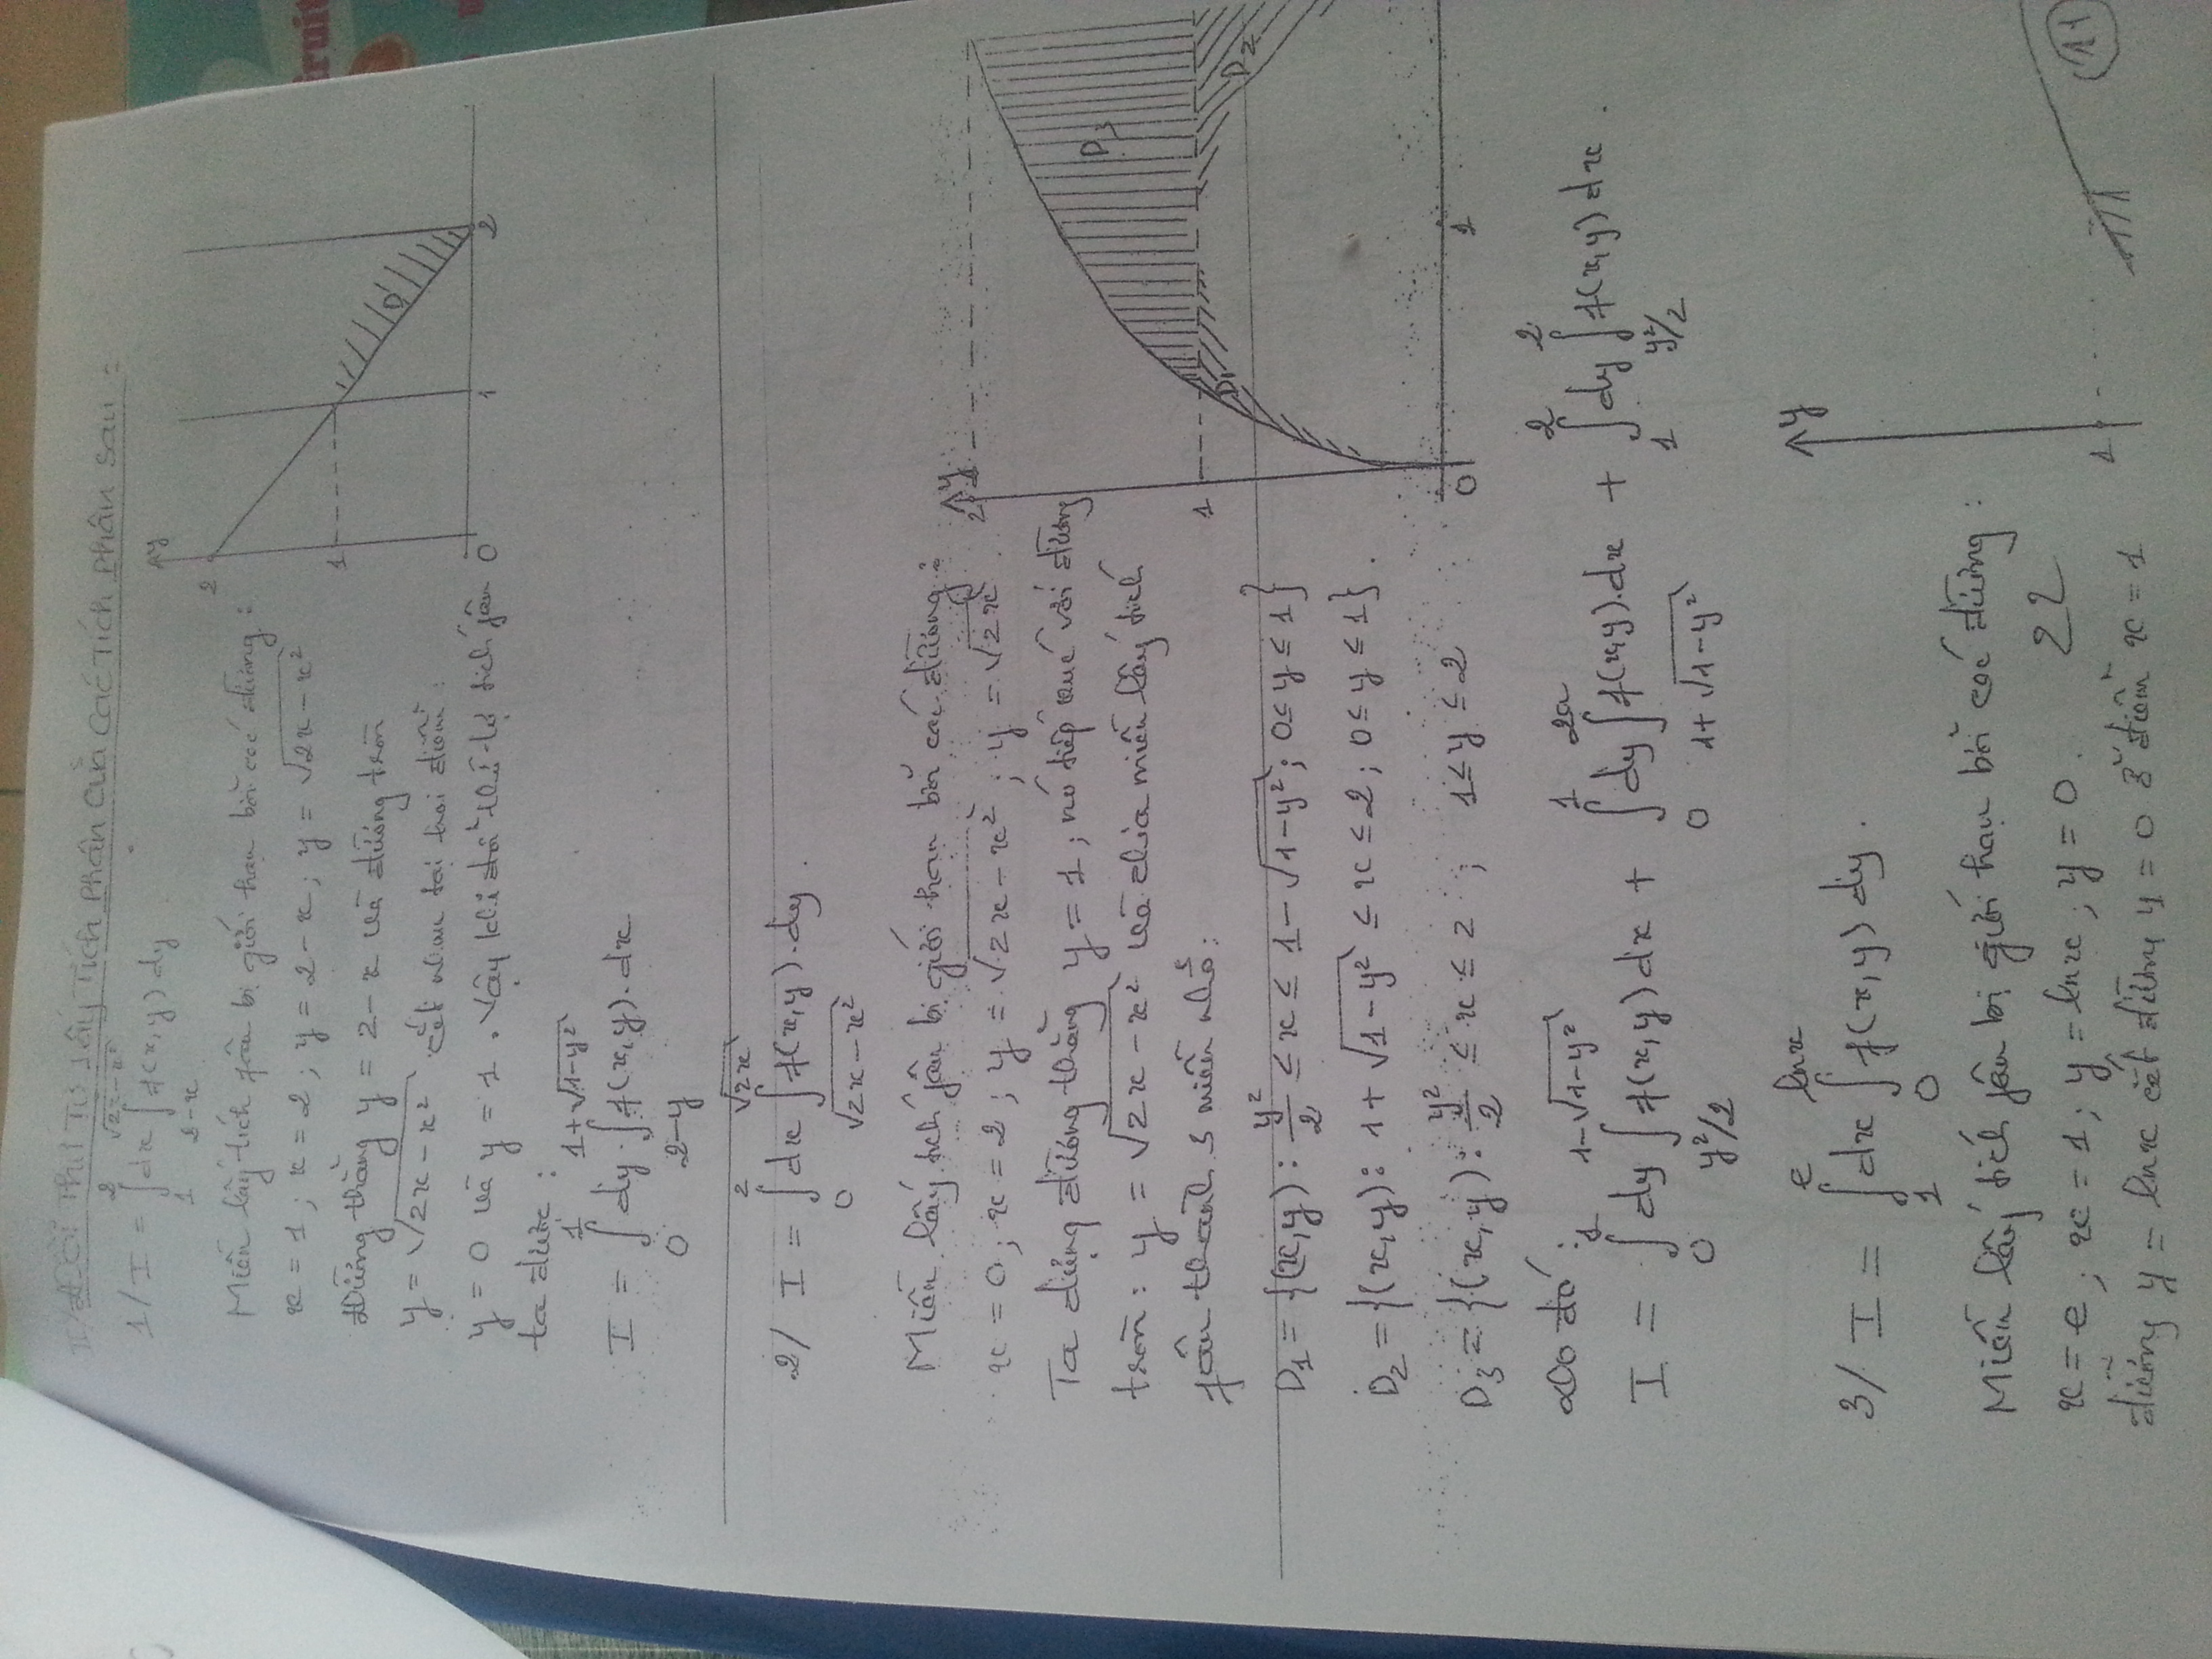 II/ Đổi Thứ Tự Lấy Tích Phân Của Các Tích Phân Sau :
1/ I = ∫₁² dx ∫_{2-x}^{√(2x-x²)} f(x,y) dy
Miền lấy tích fân bị giới hạn bởi các đường :
x = 1 ; x = 2 ; y = 2 - x ; y = √(2x - x²)
Đường thẳng y = 2 - x và đường tròn
y = √(2x - x²) cắt nhau tại hai điểm :
y = 0 và y = 1 . Vậy khi đổi thứ tự tích fân
ta được :
I = ∫₀¹ dy . ∫_{2-y}^{1+√(1-y²)} f(x,y) . dx
y
2
1
D
0 1 2
2/ I = ∫₀² dx ∫_{√(2x-x²)}^{√(2x)} f(x,y) . dy .
Miền lấy tích fân bị giới hạn bởi các đường :
x = 0 ; x = 2 ; y = √(2x - x²) ; y = √(2x)
Ta dựng đường thẳng y = 1 ; nó tiếp xúc với đường
tròn : y = √(2x - x²) và chia miền lấy tích
fân thành 3 miền nhỏ :
D₁ = {(x,y) : y²/2 ≤ x ≤ 1 - √(1-y²) ; 0 ≤ y ≤ 1}
D₂ = {(x,y) : 1 + √(1-y²) ≤ x ≤ 2 ; 0 ≤ y ≤ 1} .
D₃ = {(x,y) : y²/2 ≤ x ≤ 2 ; 1 ≤ y ≤ 2
y
2
D₃
1
D₁
D₂
0 1
Do đó :
I = ∫₀¹ dy ∫_{y²/2}^{1-√(1-y²)} f(x,y) dx + ∫₀¹ dy ∫_{1+√(1-y²)}^{2a} f(x,y) . dx + ∫₁² dy ∫_{y²/2}^{2} f(x,y) dx .
3/ I = ∫₁^e dx ∫₀^{lnx} f(x,y) dy .
Miền lấy tích fân bị giới hạn bởi các đường :
x = e ; x = 1 ; y = lnx ; y = 0 .
22
đường y = lnx cắt đường y = 0 ở điểm x = 1
y
1
11